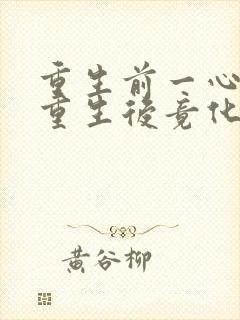 重生前一心
重生後竟化
黄谷柳